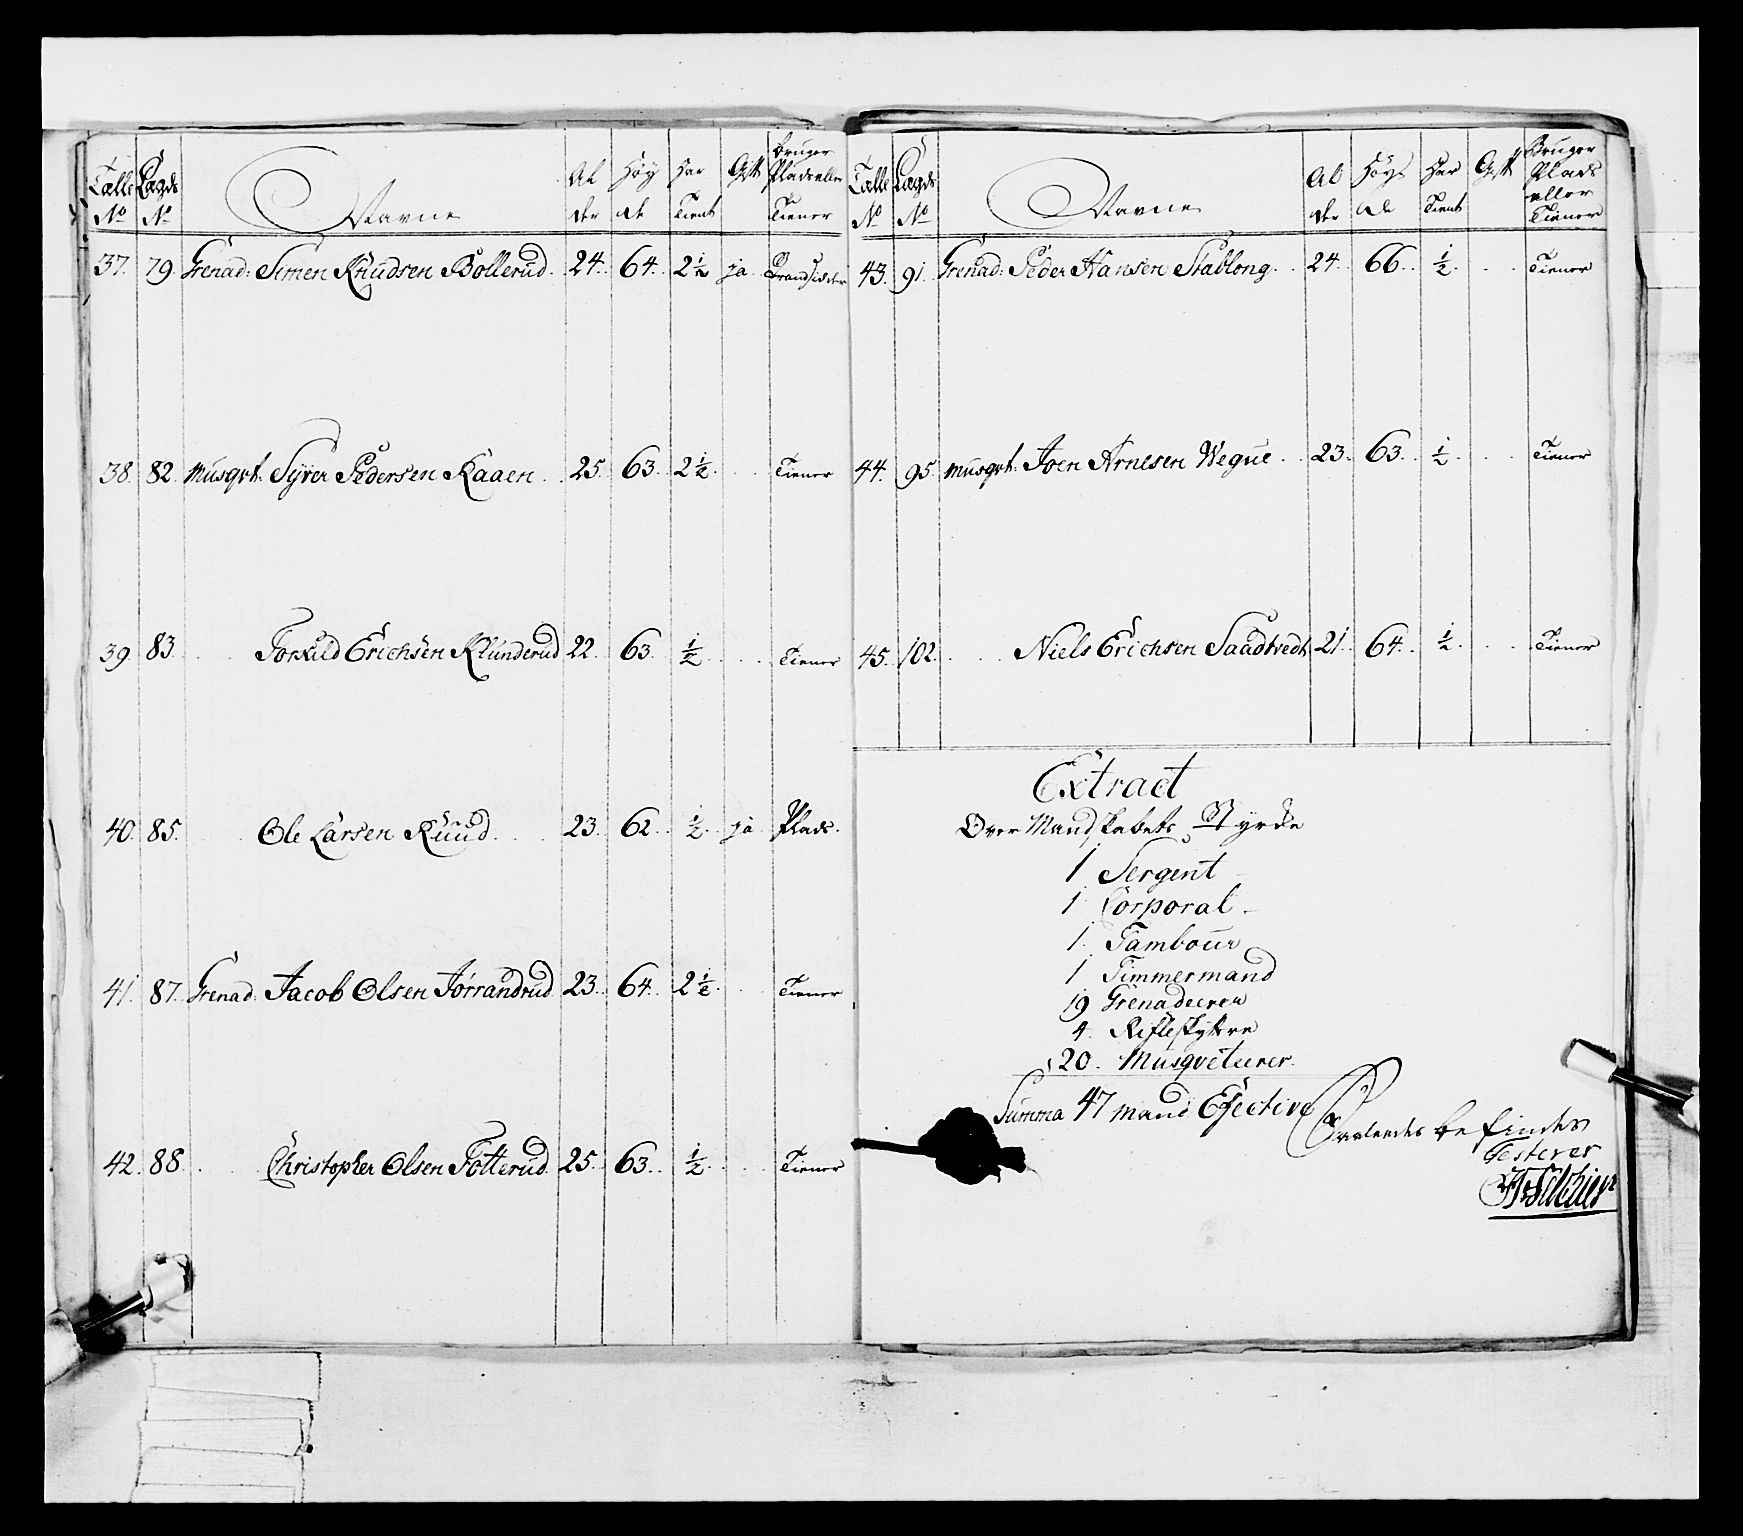 Talle Lægds Navne Al Høy Har Gift Bruger
Plads eller
No No der de Tient Tiener
37. 79. Grenad: Simen Knudsen Bollerud. 24. 64. 2 1/2 ja
38. 82. Musqvt: Syver Pedersen Kaaen. 25. 63. 2 1/2 Tiener
39 83. Torkild Erichsen Klunderud 22. 63. 1/2 Tiener
40. 85. Ole Larsen Ruud. 23. 62. 1/2 ja Plads.
41. 87. Grenad: Jacob Olsen Jorrandrud 23. 64. 2 1/2 Tiener
42. 88. Christopher Olsen Totterud 25. 63. 1/2 Tiener
Talle Lægds Navne Al Høy Har Gift Bruger
Plads
eller
No No der de Tient Tiener
43. 91. Grenad: Peder Hansen Stablong. 24. 66. 1/2 Tiener
44. 95. Musqvt: Joen Arnesen Wegue. 23. 63. 1/2 Tiener
45. 102. Niels Erichsen Saadtvedt 21. 64. 1/2 Tiener
Extract
Over Mandskabets Styrke
1 Sergent
1 Corporal
1. Tambour
1 Timmermand
19 Grenadeerer
4. Rifleskyttere
20. Musqveteerer.
Summa 47 Mand Efective
Saaledes befindes
Testerer